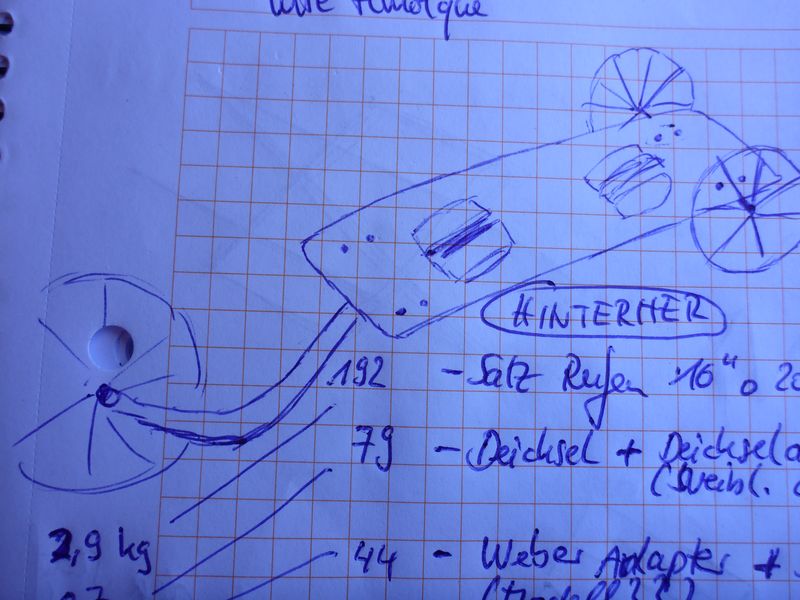 HINTERHER
192 - Satz Reifen 16" o 20
79 - Deichsel + Deichsela
2,9 kg
44 - Weber Adapter +